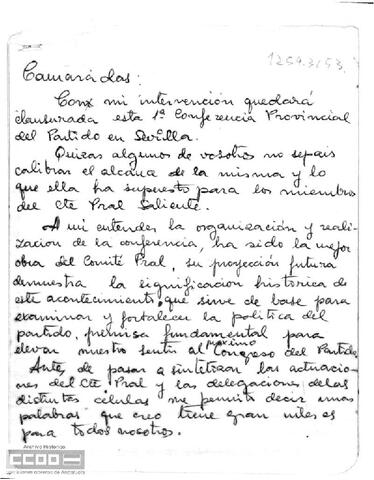 1259.3/53
Camarádas:
Con mi intervención quedará
clausurada esta 1ª Conferencia Provincial
del Partido en Sevilla.
Quizas algunos de vosotros no sepais
calibrar el alcance de la misma y lo
que ella ha supuesto para los miembros
del Cte Pral Saliente.
A mi entender la organización y reali-
zacion de la conferencia, ha sido la mejor
obra del Comité Pral, su proyección futura
demuestra la significacion historica de
este acontecimiento, que sirve de base para
examinar y fortalecer la politica del
partido, premisa fundamental para
elevar nuestro sentir al máximo Congreso del Partido
Antes de pasar a sintetizar las actuacio-
nes del Cte Pral y las delegaciones de las
distintas células me permito decir unas
palabras que creo tiene gran
para todos nosotros.
Archivo Histórico
CCOO